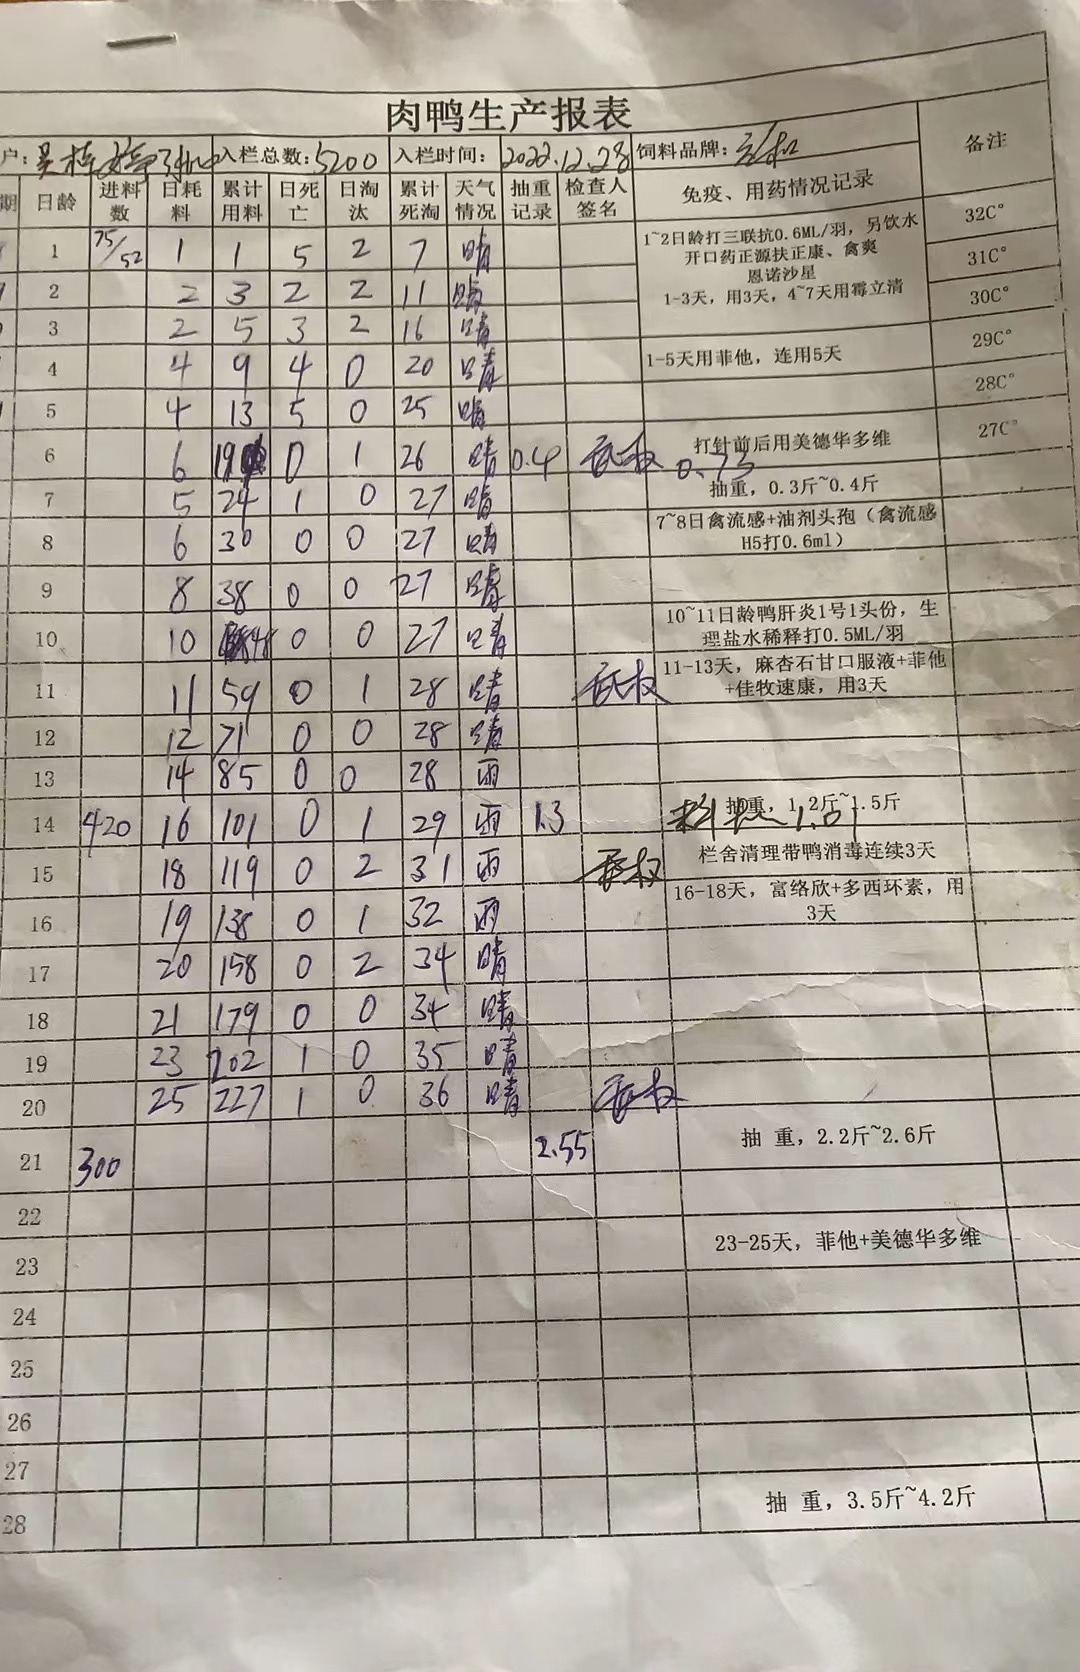 肉鸭生产报表
户: 入栏总数: 5200 入栏时间: 2022.12.28 饲料品牌: 备注
期 日龄 进料数 日耗料 累计用料 日死亡 日淘汰 累计死淘 天气情况 抽重记录 检查人签名 免疫、用药情况记录
1 75/52 1 1 5 2 7 晴 1~2日龄打三联抗0.6ML/羽，另饮水 32C°
开口药正源扶正康、禽爽 31C°
恩诺沙星
2 2 3 2 2 11 晴 1-3天，用3天，4~7天用霉立清 30C°
3 2 5 3 2 16 晴 29C°
4 4 9 4 0 20 晴 1-5天用菲他，连用5天
5 4 13 5 0 25 晴 28C°
6 6 19 0 1 26 晴 0.4 打针前后用美德华多维 27C°
0.73
7 5 24 1 0 27 晴 抽重，0.3斤~0.4斤
8 6 30 0 0 27 晴 7~8日禽流感+油剂头孢（禽流感
H5打0.6ml）
9 8 38 0 0 27 晴
10 10 48 0 0 27 晴 10~11日龄鸭肝炎1号1头份，生
理盐水稀释打0.5ML/羽
11 11 59 0 1 28 晴 11-13天，麻杏石甘口服液+菲他
+佳牧速康，用3天
12 12 71 0 0 28 晴
13 14 85 0 0 28 雨
14 420 16 101 0 1 29 雨 1.3 抽重，1.2斤~1.5斤
15 18 119 0 2 31 雨 栏舍清理带鸭消毒连续3天
16 19 138 0 1 32 雨 16-18天，富络欣+多西环素，用
3天
17 20 158 0 2 34 晴
18 21 179 0 0 34 晴
19 23 202 1 0 35 晴
20 25 227 1 0 36 晴
21 300 2.55 抽 重，2.2斤~2.6斤
22
23 23-25天，菲他+美德华多维
24
25
26
27
28 抽 重，3.5斤~4.2斤